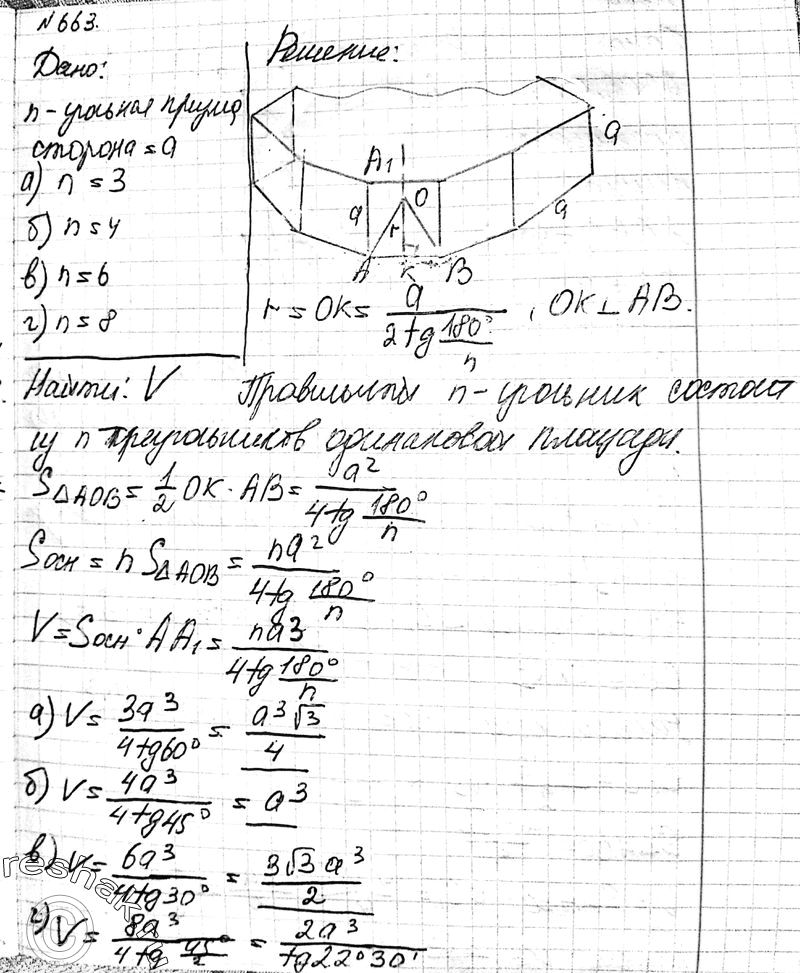 №663.
Дано:
n-угольная призма
сторона = a
а) n = 3
б) n = 4
в) n = 6
г) n = 8
Решение:
A₁
a
O
a
r
a
A
K
B
r = OK = a / (2tg 180°/n), OK ⊥ AB.
Найти: V
Правильный n-угольник состоит
из n треугольников одинаковой площади.
S△AOB = 1/2 OK · AB = a² / (4tg 180°/n)
Sосн = n S△AOB = na² / (4tg 180°/n)
V = Sосн · AA₁ = na³ / (4tg 180°/n)
а) V = 3a³ / 4tg60° = a³√3 / 4
б) V = 4a³ / 4tg45° = a³
в) V = 6a³ / 4tg30° = 3√3 a³ / 2
г) V = 8a³ / (4tg 45°/2) = 2a³ / tg22°30'